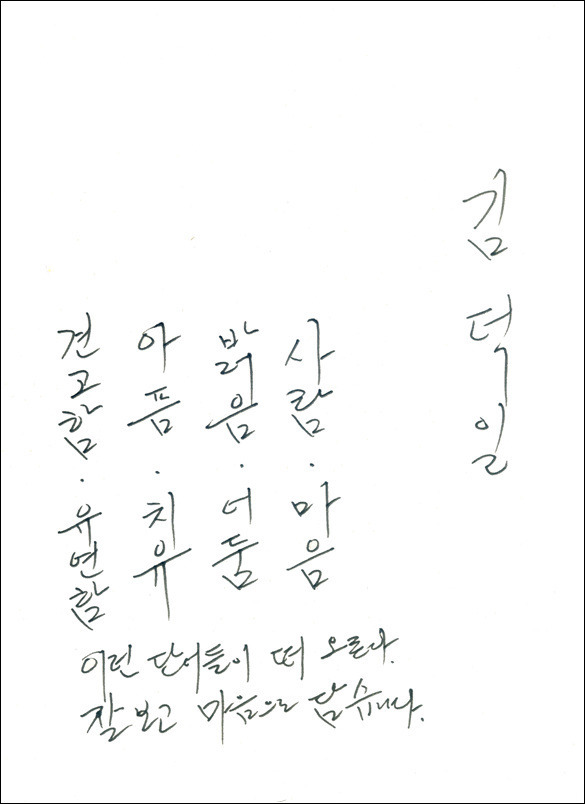 김덕일
사람·마음
밝음·어둠
아픔·치유
견고함·유연함
이런 단어들이 떠오른다.
잘 보고 마음으로 담습니다.